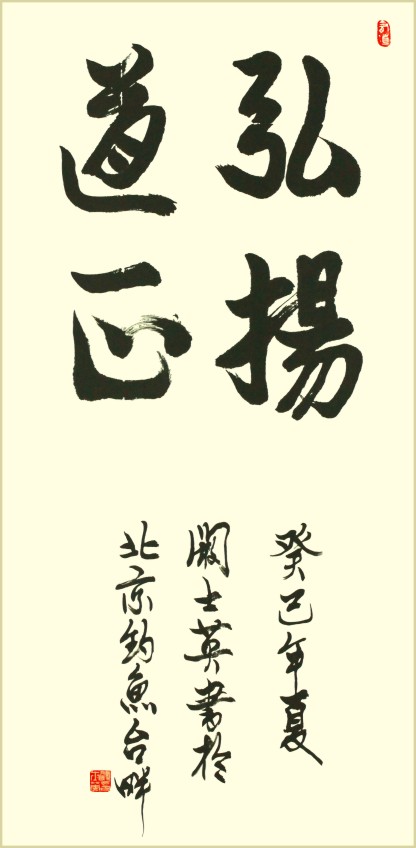 弘揚
道正
癸巳年夏
闞士英書於
北京釣魚台畔